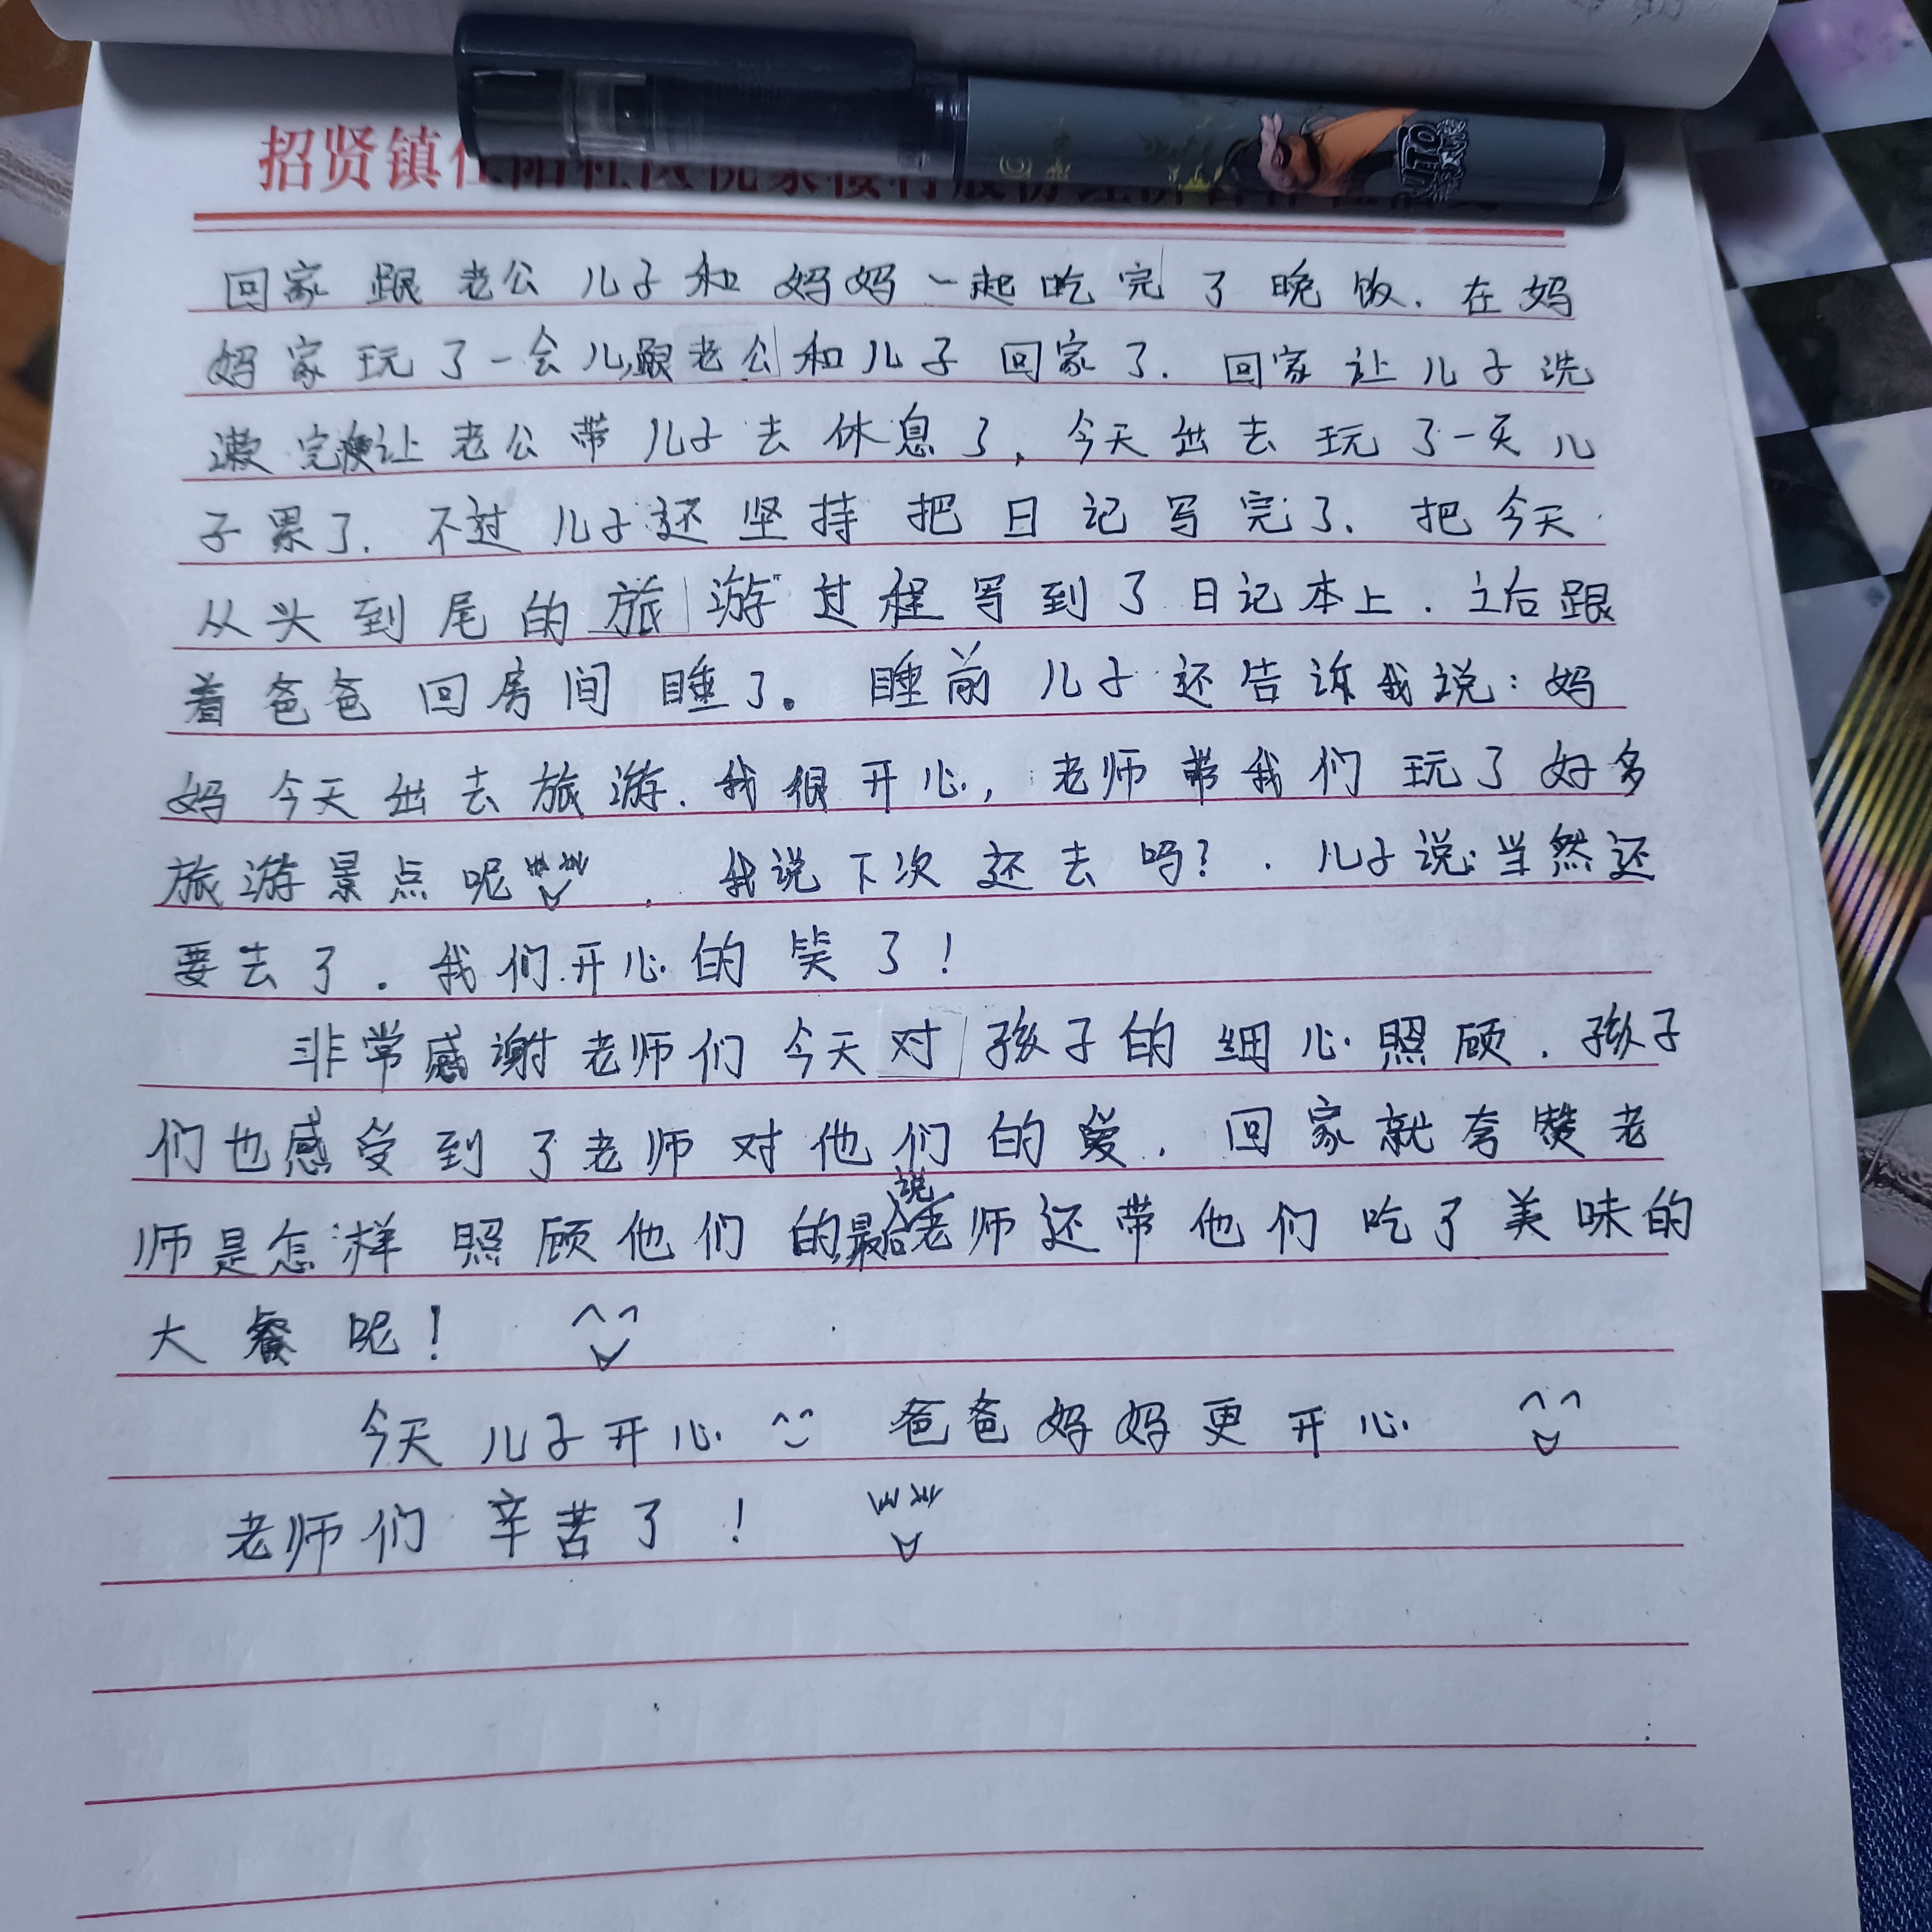 招贤镇
回家跟老公儿子和妈妈一起吃完了晚饭.在妈
妈家玩了一会儿,跟老公和儿子回家了.回家让儿子洗
漱完便让老公带儿子去休息了,今天出去玩了一天儿
子累了.不过儿子还坚持把日记写完了.把今天
从头到尾的旅游过程写到了日记本上.之后跟
着爸爸回房间睡了。睡前儿子还告诉我说:妈
妈今天出去旅游.我很开心,老师带我们玩了好多
旅游景点呢.我说下次还去吗?.儿子说:当然还
要去了.我们开心的笑了!
非常感谢老师们今天对孩子的细心照顾.孩子
们也感受到了老师对他们的爱.回家就夸赞老
师是怎样照顾他们的,最后说老师还带他们吃了美味的
大餐呢!
今天儿子开心 爸爸妈妈更开心
老师们辛苦了!